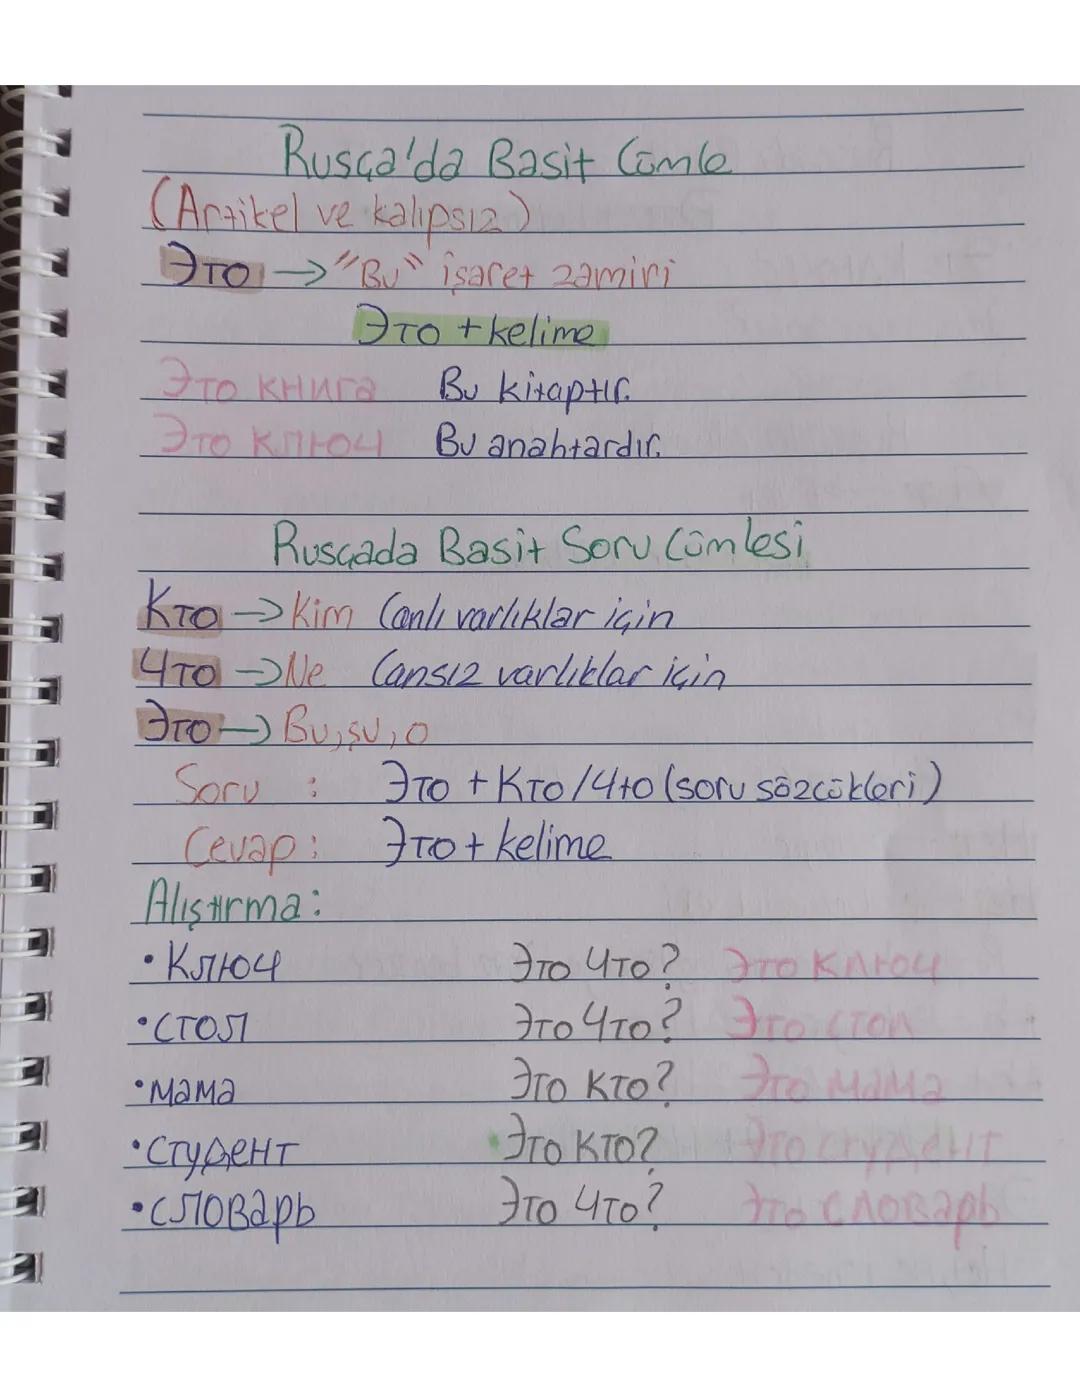 Rusça'da Basit Cümle
(Artikel ve kalıpsız)
Это → "Bu" işaret zamiri
Это + kelime
Это книга Bu kitaptır.
Это ключ Bu anahtardır.
Rusçada Basit Soru Cümlesi
Кто → Kim Canlı varlıklar için
Что → Ne Cansız varlıklar için
Это → Bu, şu, o
Soru : Это + Кто/Что (soru sözcükleri)
Cevap : Это + kelime
Alıştırma :
• Ключ Это Что? Это ключ
• стол Это Что? Это стол
• мама Это кто? Это мама
• студент Это кто? Это студент
• словарь Это Что? Это словарь